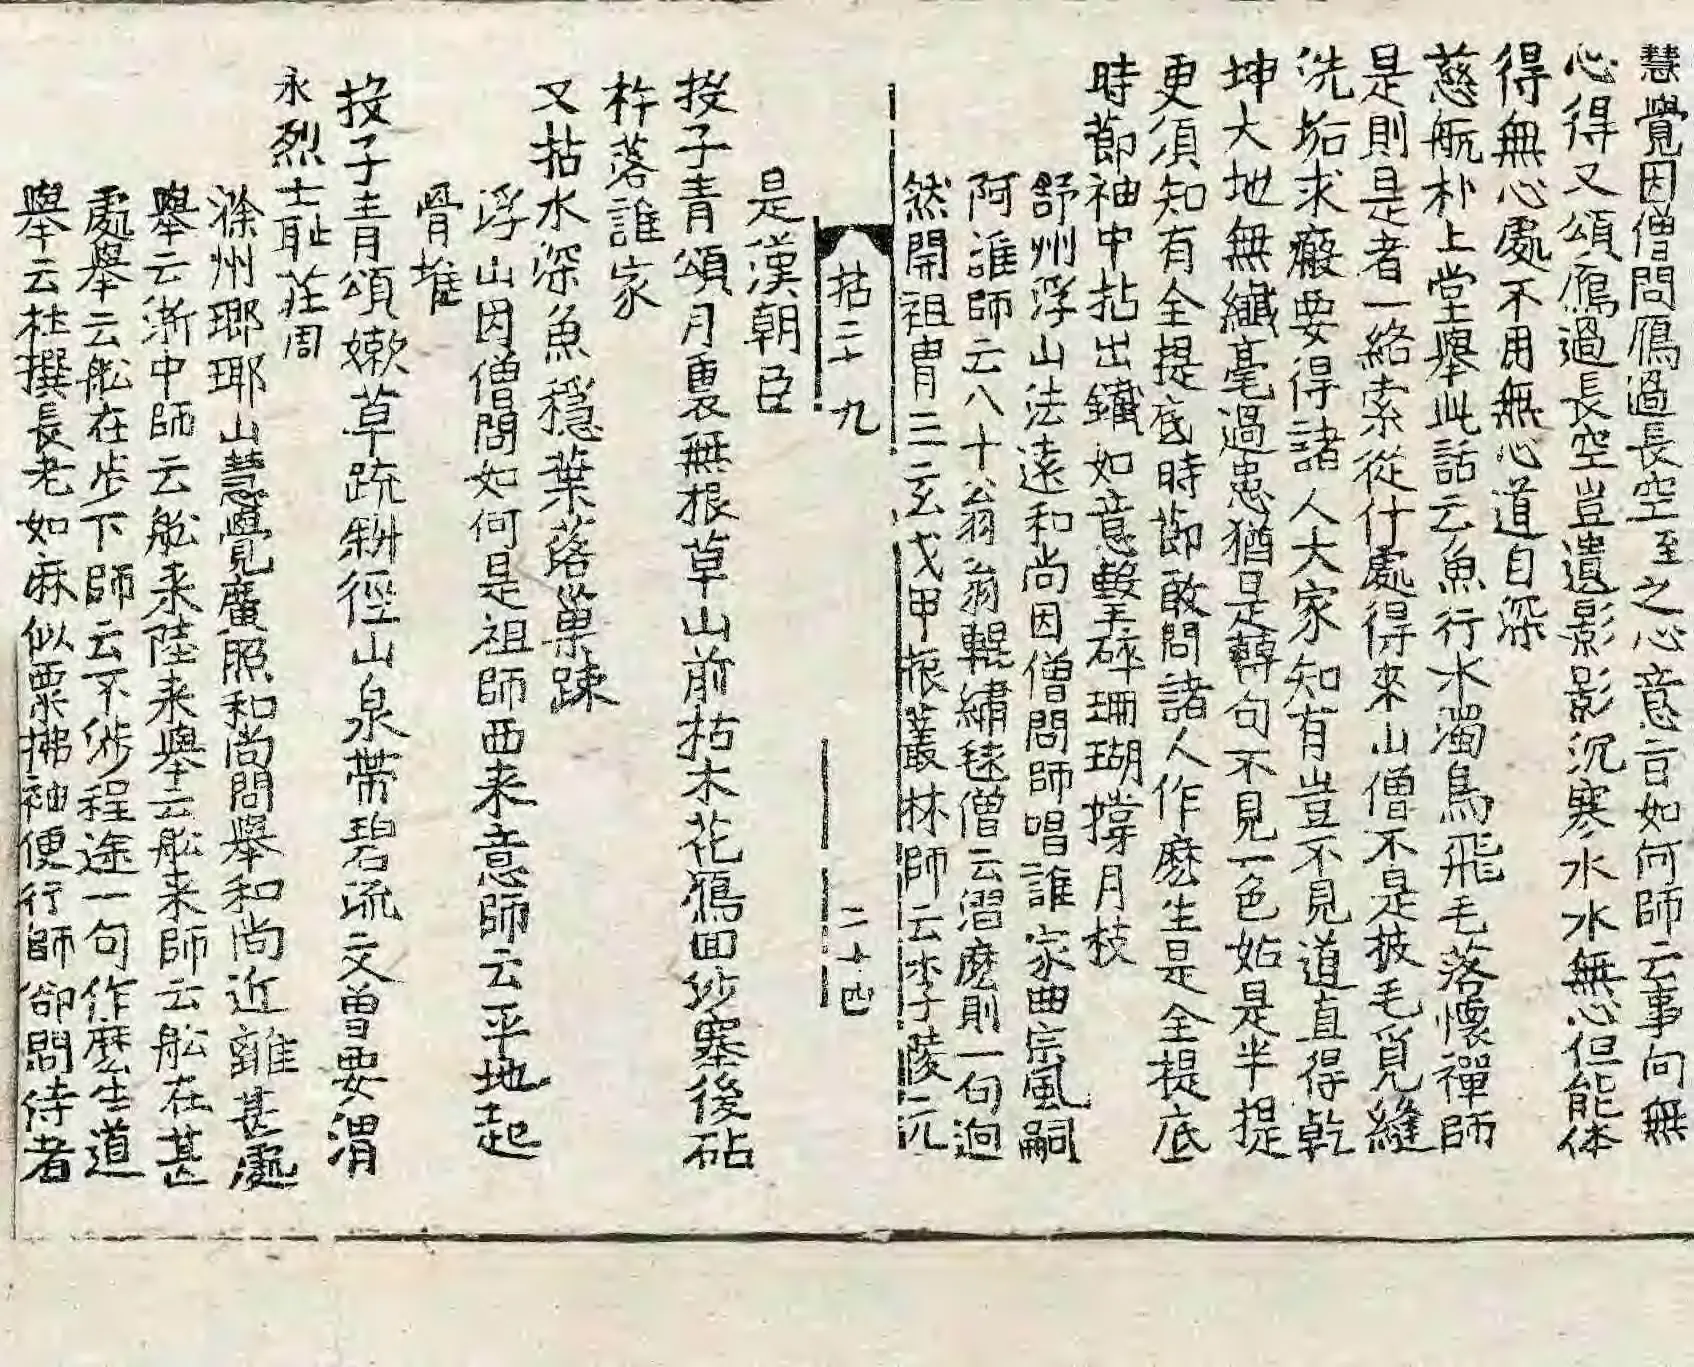 慧覺因僧問鴈過長空至之心意言如何師云事向無
心得又頌鴈過長空豈遺影影沉寒水水無心但能体
得無心處不用無心道自深
慈航朴上堂舉此話云魚行水濁鳥飛毛落懷禪師
是則是者一絡索從什處得來山僧不是披毛覓縫
洗垢求瘢要得諸人大家知有豈不見道直得乾
坤大地無纖毫過患猶是轉句不見一色始是半提
更須知有全提底時節敢問諸人作麽生是全提底
時節袖中拈出鐵如意擊碎珊瑚撑月枝
舒州浮山法遠和尚因僧問師唱誰家曲宗風嗣
阿誰師云八十翁翁輥繡毬僧云溜麽則一句逈
然開祖冑三玄戈甲振叢林師云李陵元
拈二十九
二十四
是漢朝臣
投子青頌月裏無根草山前枯木花鴈囬沙塞後砧
杵落誰家
又拈水深魚穩葉落巢踈
浮山因僧問如何是祖師西来意師云平地起
骨堆
投子青頌嫰草䟽耕徑山泉帶碧流文曽要渭
永烈士耻莊周
滁州瑯瑘山慧覺廣照和尚問舉和尚近離甚處
舉云浙中師云舩来陸来舉云舩来師云舩在甚
處舉云舩在步下師云不涉程途一句作麽生道
舉云杜撰長老如麻似粟拂袖便行師卻問侍者